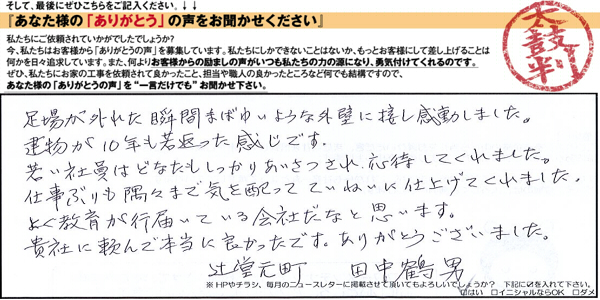 そして、最後にぜひこちらをご記入ください。↓↓
『あなた様の「ありがとう」の声をお聞かせください』
私たちにご依頼されていかがでしたでしょうか?
今、私たちはお客様から「ありがとうの声」を募集しています。私たちにしかできないことはないか、もっとお客様にして差し上げることは
何かを日々追求しています。また、何よりお客様からの励ましの声がいつも私たちの力の源になり、勇気付けてくれるのです。
ぜひ、私たちにお家の工事を依頼されて良かったこと、担当や職人の良かったところなど何でも結構ですので、
あなた様の「ありがとうの声」を"一言だけでも"お聞かせ下さい。
太鼓判
足場が外れた瞬間まばゆいような外壁に接し感動しました。
建物が10年も若返った感じです。
若い社員はどなたもしっかりあいさつされ、応待してくれました。
仕事ぶりも隅々まで気を配って ていねいに仕上げてくれました。
よく教育が行届いている会社だなと思います。
貴社に頼んで本当に良かったです。ありがとうございました。
辻堂元町 田中鶴男
※HPやチラシ、毎月のニュースレターに掲載させて頂いてもよろしいでしょうか? 下記に☑を入れて下さい。
はい 口イニシャルならOK 口ダメ